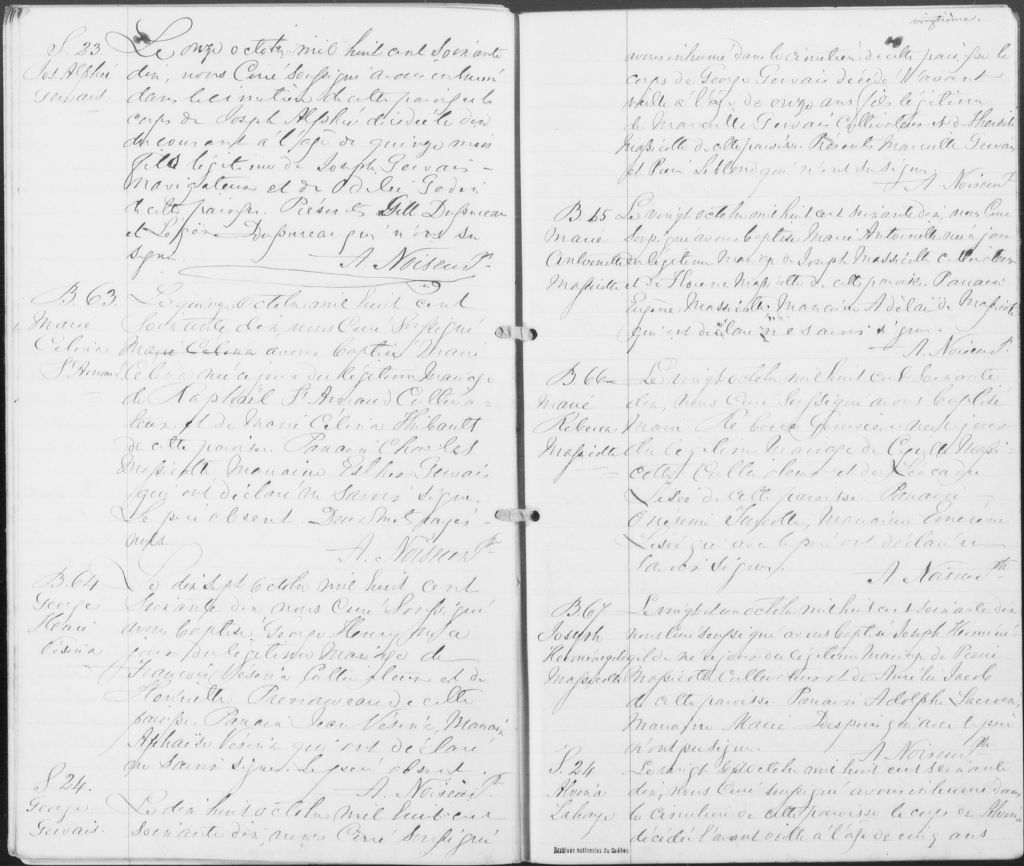 S. 23
Jos Alphé
Gervais
Le onze octobre mil huit cent soixante
dix, nous Curé soussigné avons inhumé
dans le cimetière de cette paroisse le
corps de Joseph Alphée décédé le dix
du courant à l'âge de quinze mois
fils légitime de Joseph Gervais
Navigateur et de Odélie Godin
de cette paroisse. Présents
et qui n'ont su
signer.
A. Noiseux Ptr
B. 63
Marie
Célina
St Arnaud
Le quinze octobre mil huit cent
soixante dix nous Curé soussigné
Marie Celina avons baptisé Marie
Célina née ce jour du légitime Mariage
de Raphaël St Arnaud Cultiva-
teur et de Marie Célina Thibault
de cette paroisse. Parrain Charles
Massicotte Marraine Esther Gervais
qui ont déclaré ne savoir signer.
Le père absent. Deux mots rayés
nuls.
A. Noiseux Ptr
B. 64
George
Henri
Vésina
Le dix sept octobre mil huit cent
soixante dix nous Curé soussigné
avons baptisé George Henry né ce
jour du légitime Mariage de
François Vésina Cultivateur et de
Henriette de cette
paroisse. Parrain Jean Vésina, Marraine
Vésina qui ont déclaré
ne savoir signer. Le père absent.
A. Noiseux Ptr
S. 24.
George
Gervais.
Le dix huit octobre mil huit cent
soixante dix nous Curé soussigné
vingtième.
avons inhumé dans le cimetière de cette paroisse le
corps de George Gervais décédé l'avant
veille à l'âge de onze ans fils légitime
de Marcelle Gervais Cultivateur et de
Massicotte de cette paroisse. Présents Marcelle Gervais
et Pierre Leblond qui n'ont su signer.
A. Noiseux Ptr
B 65
Marie
Antoinette
Massicotte
Le vingt octobre mil huit cent soixante dix, nous Curé
soussigné avons baptisé Marie Antoinette née ce jour
du légitime Mariage de Joseph Massicotte Cultivateur
et de Florence Massicotte de cette paroisse. Parrain
Eugène Massicotte Marraine Adélaide Massicotte
qui ont déclaré ne savoir signer.
A. Noiseux Ptr
B 66
Marie
Rébecca
Massicotte
Le vingt octobre mil huit cent soixante
dix, nous Curé soussigné avons baptisé
Marie Rébecca née ce jour
du légitime Mariage de Massi-
cotte Cultivateur et de Léocadie
de cette paroisse. Parrain
Onésime Marraine
qui avec le père ont déclaré ne
savoir signer.
A Noiseux Ptr
B. 67
Joseph
Herménégilde
Massicotte
Le vingt et un octobre mil huit cent soixante dix
nous Curé soussigné avons baptisé Joseph Herméné-
gilde né ce jour du légitime Mariage de Pierre
Massicotte Cultivateur et de Amélie Jacob
de cette paroisse. Parrain Adolphe
Marraine Marie qui avec le père
n'ont pu signer.
A. Noiseux Ptr
S. 24
Alvina
Lahaye
Le vingt sept octobre mil huit cent soixante
dix, nous Curé soussigné avons inhumé dans
le cimetière de cette paroisse le corps de Alvina
décédée l'avant veille à l'âge de cinq ans
Archives nationales du Québec